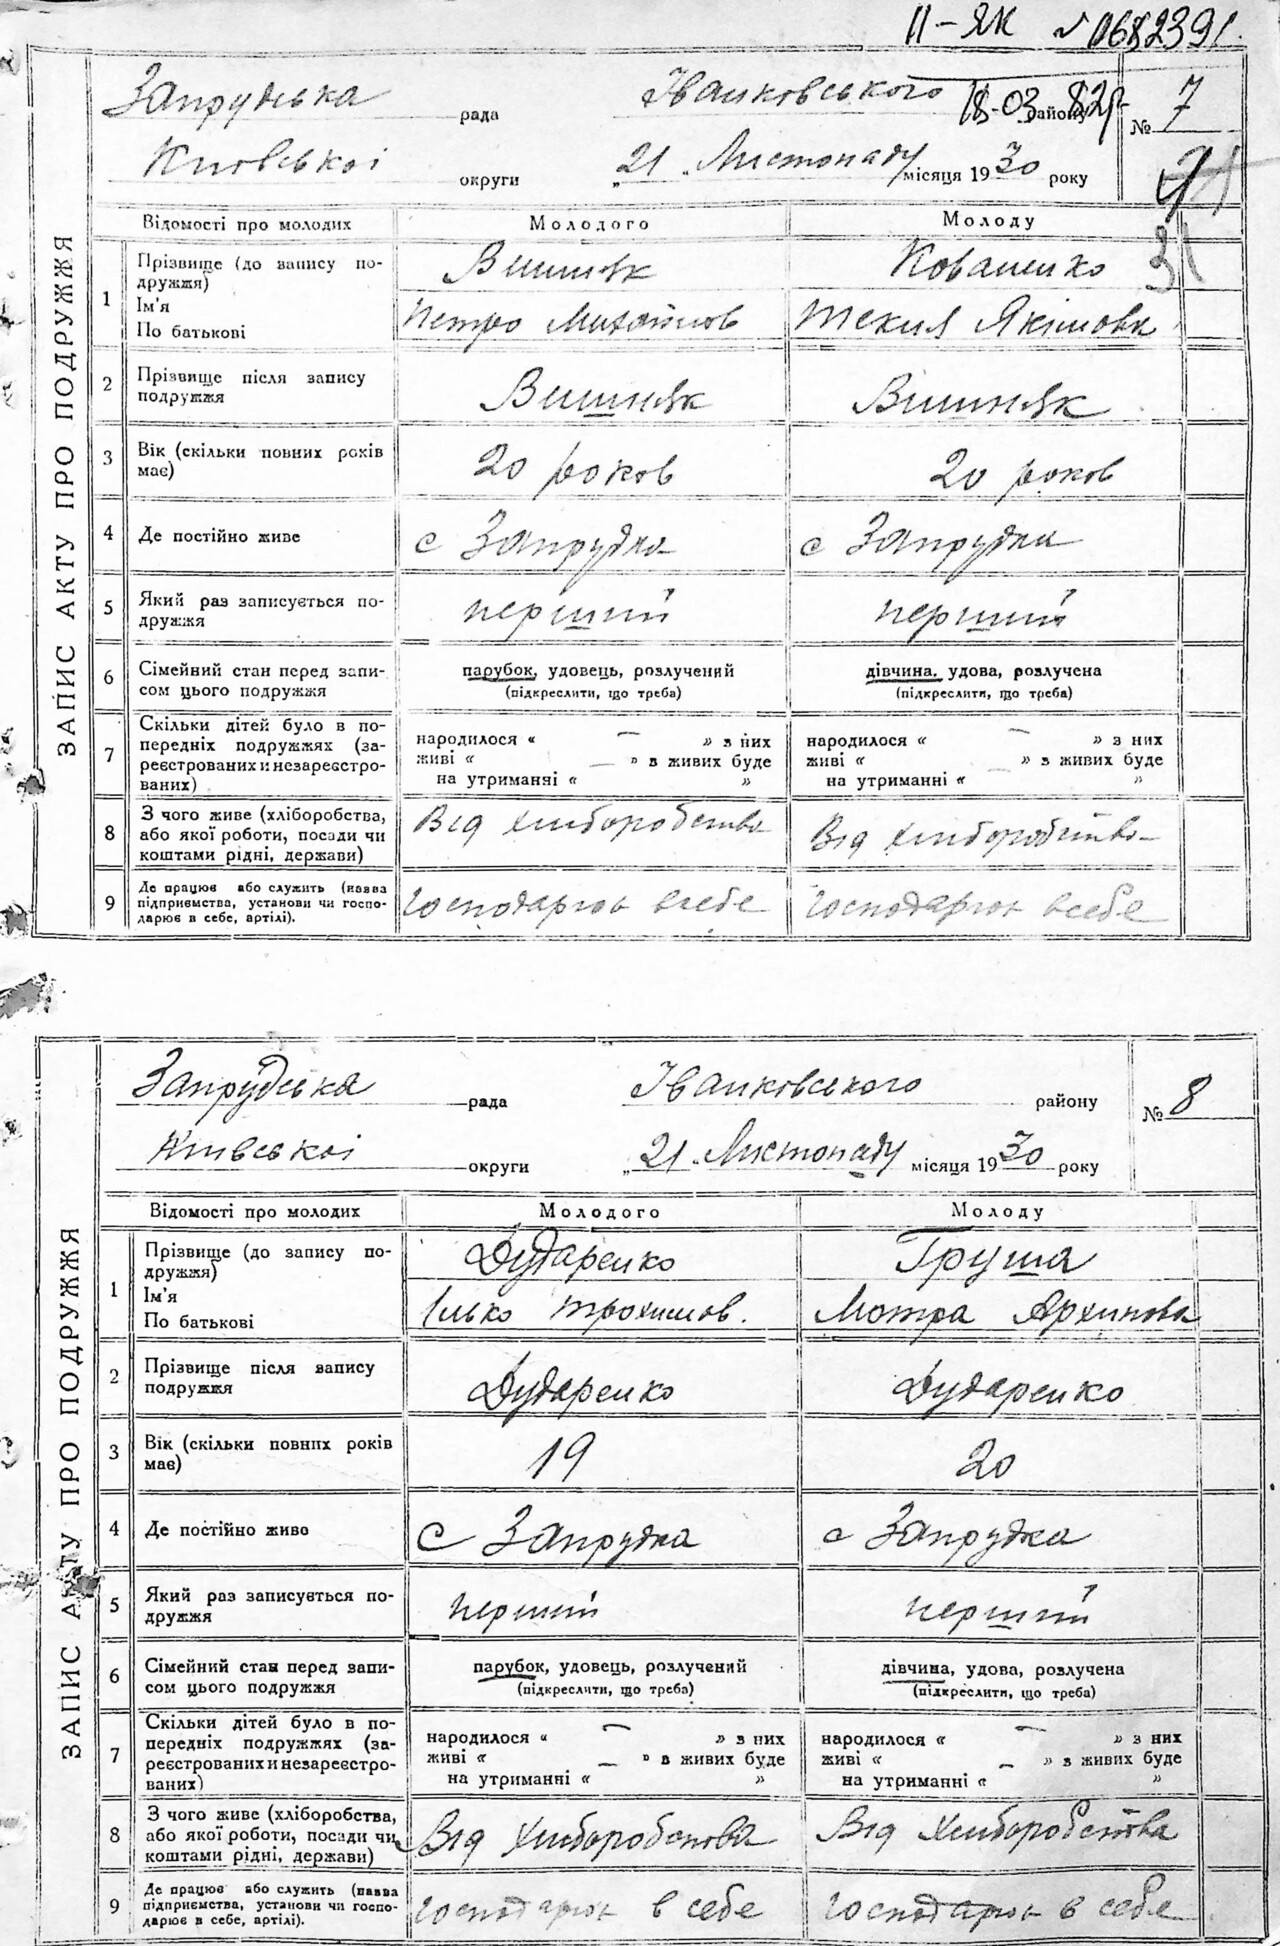 II-ЯК № 0682391
Запрудська рада Іванковського району № 7
18-03-82р
Київської округи „21„ Листопаду місяця 1930 року
31
ЗАПИС АКТУ ПРО ПОДРУЖЖЯ
Відомості про молодих Молодого Молоду
1 Прізвище (до запису по- Вишняк Коваленко
дружжя)
Ім'я Петро Михайлов Текия Якімовна
По батькові
2 Прізвище після запису Вишняк Вишняк
подружжя
3 Вік (скільки повних років 20 роков 20 роков
має)
4 Де постійно живе с Запрудка с Запрудка
5 Який раз записується по- перший перший
дружжя
6 Сімейний стан перед запи- парубок, удовець, розлучений дівчина, удова, розлучена
сом цього подружжя (підкреслити, що треба) (підкреслити, що треба)
7 Скільки дітей було в по- народилося « — » з них народилося « — » з них
передніх подружжях (за- живі « — » в живих буде живі « — » в живих буде
реєстрованих и незареєстро- на утриманні « » на утриманні « »
ваних)
8 З чого живе (хліборобства, Від хліборобства Від хліборобства
або якої роботи, посади чи
коштами рідні, держави)
9 Де працює або служить (назва Господарюе всебе Господарюе всебе
підприємства, установи чи госпо-
дарює в себе, артілі).
Запрудська рада Іванковського району № 8
Київської округи „21„ Листопаду місяця 1930 року
ЗАПИС АКТУ ПРО ПОДРУЖЖЯ
Відомості про молодих Молодого Молоду
1 Прізвище (до запису по- Дударенко Груша
дружжя)
Ім'я Ілько Трохимов. Мотра Архипова
По батькові
2 Прізвище після запису Дударенко Дударенко
подружжя
3 Вік (скільки повних років 19 20
має)
4 Де постійно живе с Запрудка с Запрудка
5 Який раз записується по- перший перший
дружжя
6 Сімейний стан перед запи- парубок, удовець, розлучений дівчина, удова, розлучена
сом цього подружжя (підкреслити, що треба) (підкреслити, що треба)
7 Скільки дітей було в по- народилося « — » з них народилося « — » з них
передніх подружжях (за- живі « — » в живих буде живі « — » в живих буде
реєстрованих и незареєстро- на утриманні « » на утриманні « »
ваних)
8 З чого живе (хліборобства, Від Хліборобства Від Хліборобства
або якої роботи, посади чи
коштами рідні, держави)
9 Де працює або служить (назва Господарюе в себе Господарюе в себе
підприємства, установи чи госпо-
дарює в себе, артілі).